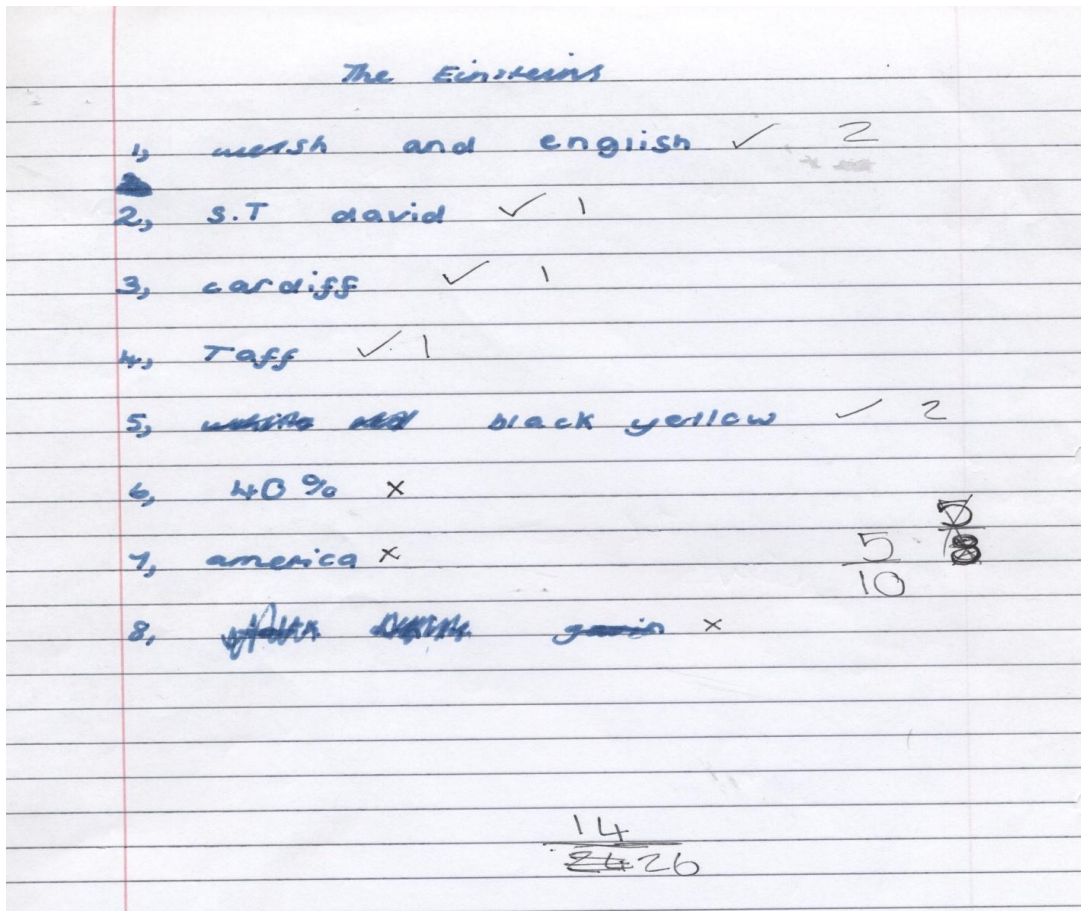 The Einsteins
1, welsh and english ✓ 2
2, S.T david ✓ 1
3, cardiff ✓ 1
4, Taff ✓ 1
5, black yellow ✓ 2
6, 40% x
7, america x
5
8
5
10
8, x
14
26